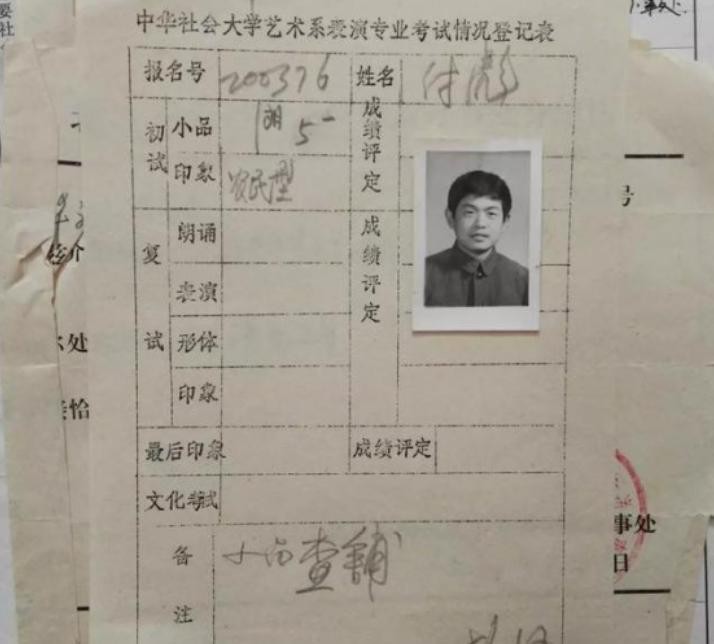 中华社会大学艺术系表演专业考试情况登记表
报名号 200376 姓名 付彪
初试 小品 5- 成绩评定
印象 农民型
复试 朗诵 成绩评定
表演
形体
印象
最后印象 成绩评定
文化考试
备注
事处
日
号
处
恰